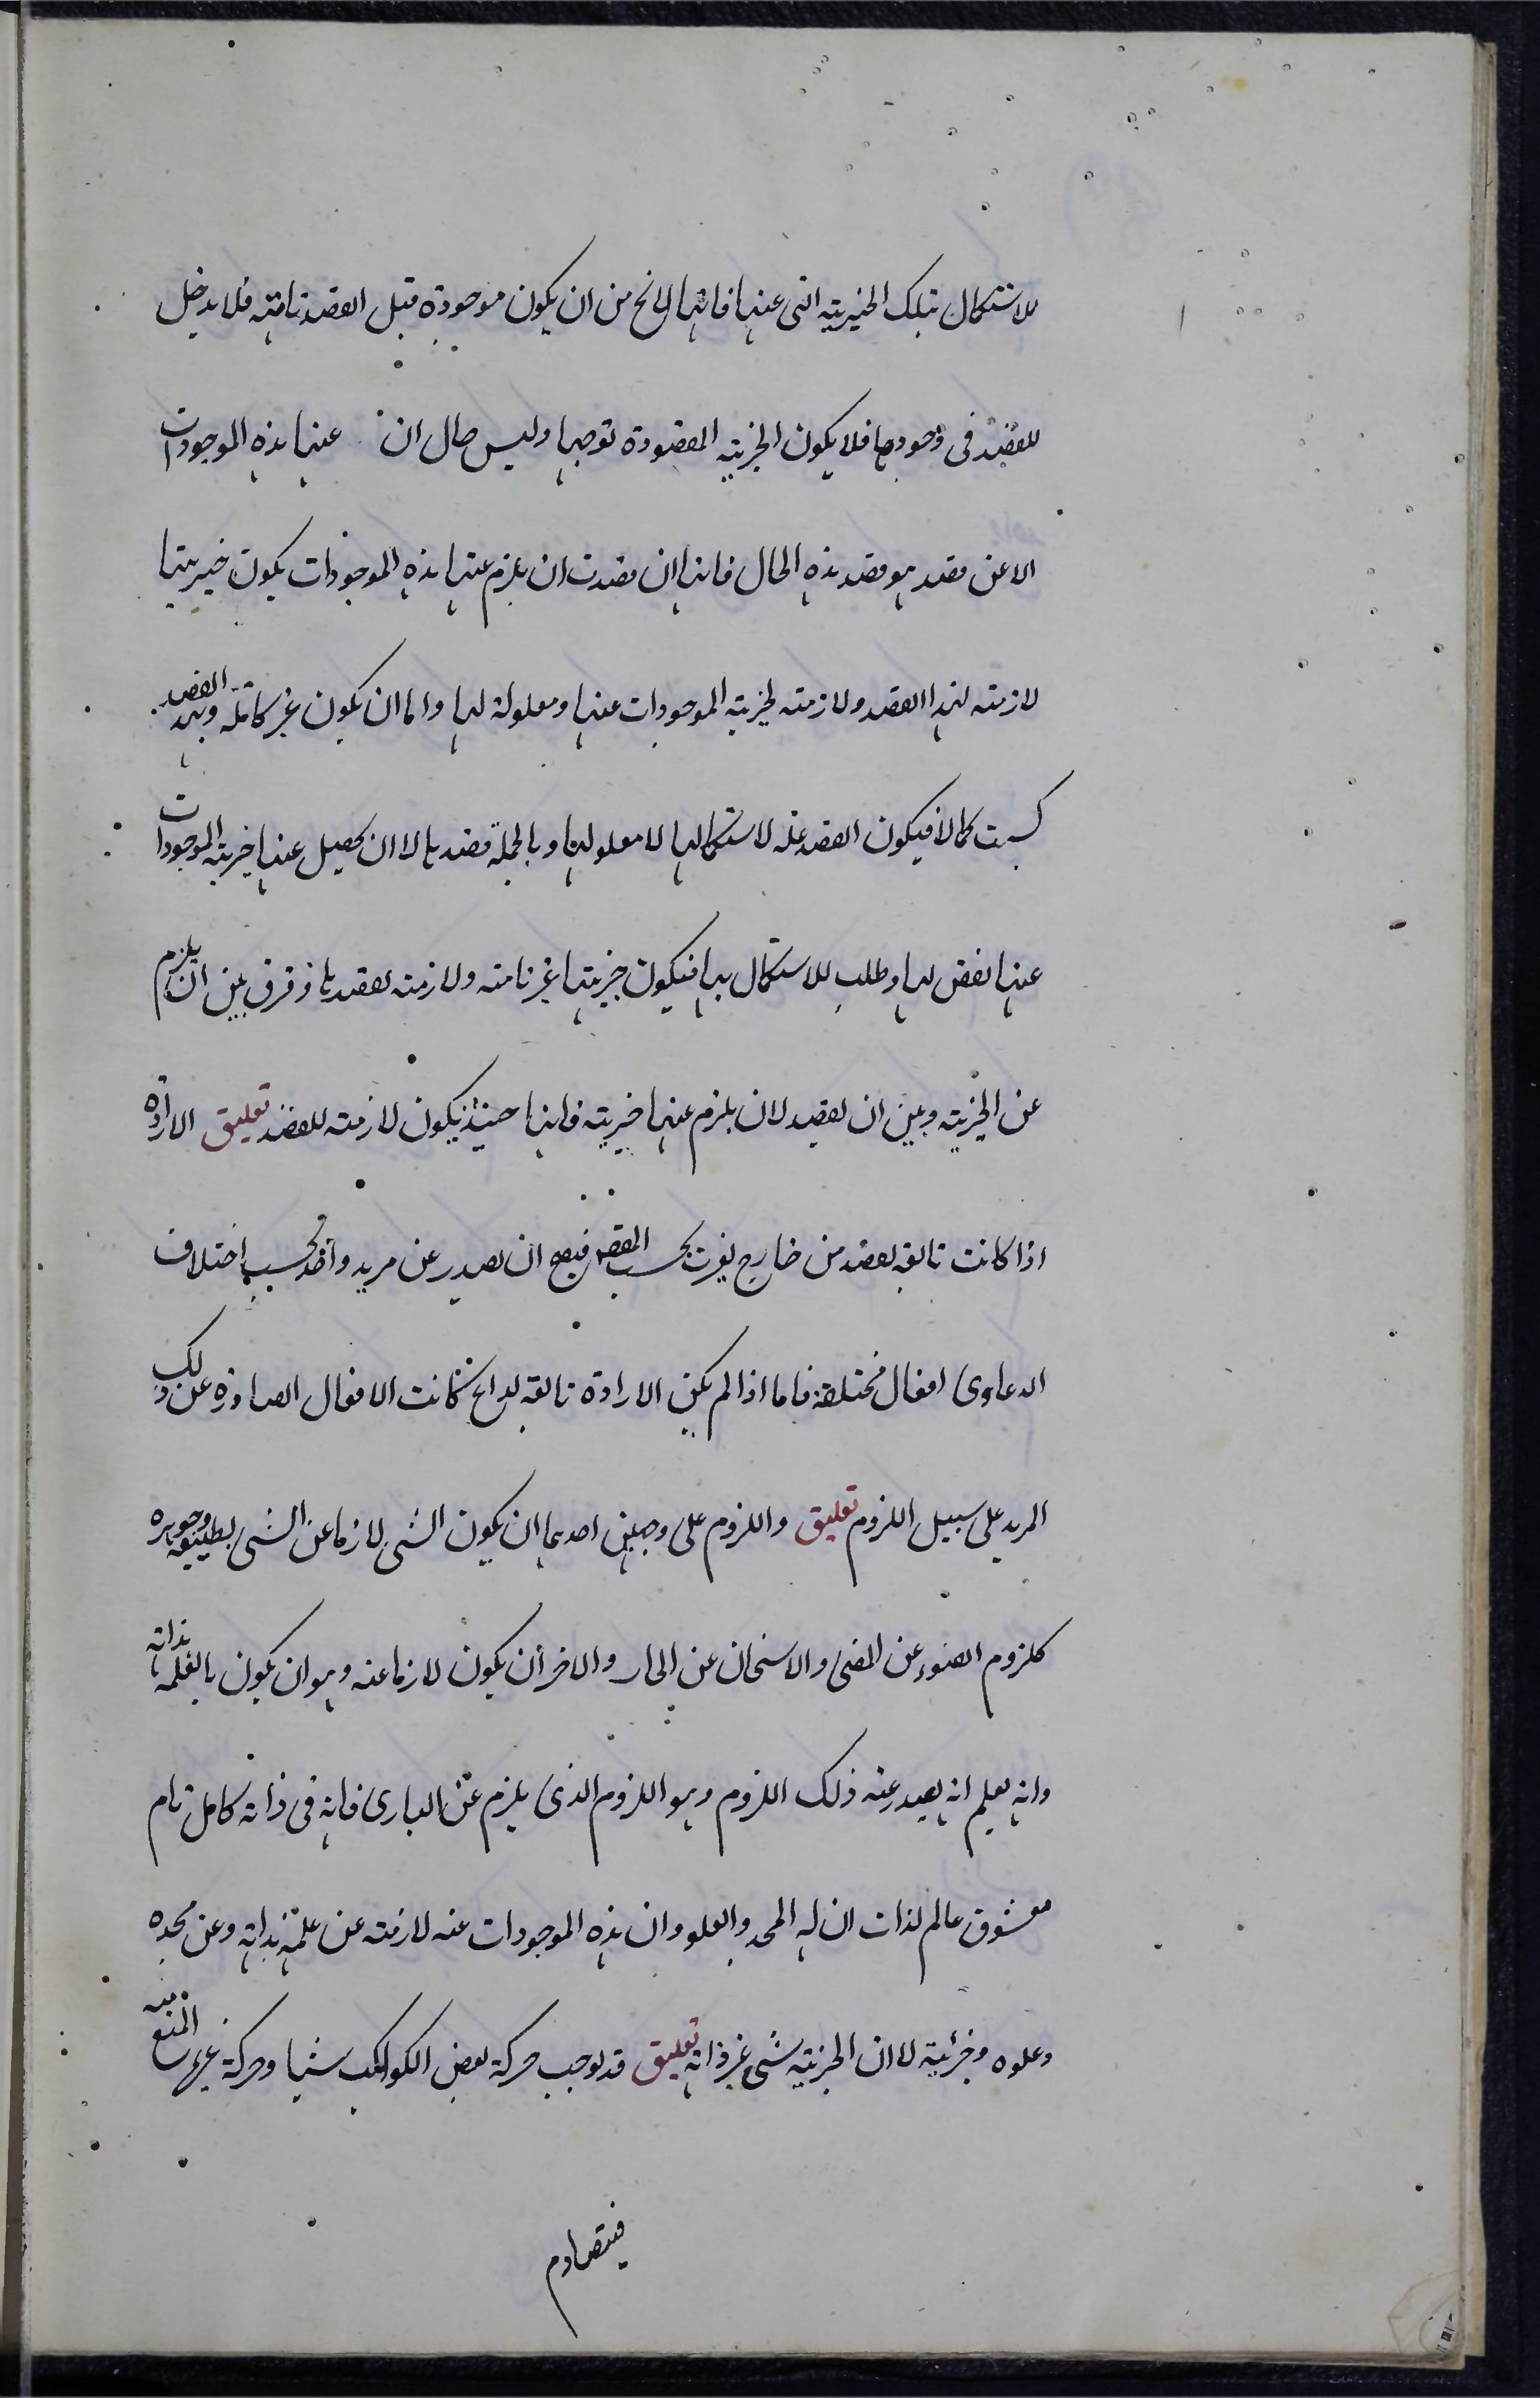 للاستكمال بتلك الخيرية التى عنها فانها لا يخ من ان يكون موجودة قبل القصد تامة فلا يدخل
للقصد فى وجودها فلا يكون الخيرية المقصودة توجبها وليس حال ان عنها هذه الموجودات
الا عن قصد هو قصد هذه الحال فانها ان قصدت ان يلزم عنها هذه الموجودات يكون خيريتها
لازمة لهذا القصد ولازمة لخيرية الموجودات عنها ومعلولة لها واما ان يكون غير كاملة وبهذا القصد
كسبت كمالا فيكون القصد علة لاستكمالها لا معلولها وبالجملة قصدها لا ان يحصل عنها خيرية الموجودات
عنها لنقص لها وطلب للاستكمال بها فيكون خيريتها غير تامة ولازمة لقصدها وفرق بين ان يلزم
عن الخيرية وبين ان يقصد لان يلزم عنها خيرية فانها حينئذ يكون لازمة للقصد تعليق الارادة
اذا كانت تابعة لقصد من خارج بحسب القصد فيصح ان يصدر عن مريد واحد بحسب اختلاف
الدعاوى افعال مختلفة فاما اذا لم يكن الارادة تابعة لداع كانت الافعال الصادرة عن ذلك
المريد على سبيل اللزوم تعليق واللزوم على وجهين احدهما ان يكون الشى لازما عن الشى لطبيعته وجوهره
كلزوم الضوء عن المضى والاسخان عن الحار والاخر ان يكون لازما عنه وهو ان يكون تابعا لعلمه بذاته
وانه يعلم انه يصدر عنه ذلك اللزوم وهو اللزوم الذى يلزم عن البارى فانه فى ذاته كامل تام
معشوق عالم لذات ان له المجد والعلو وان هذه الموجودات عنه لازمة عن علمه بذاته وعن مجده
وعلوه وخيرية لا ان الخيرية شى غير ذاته تعليق قد يوجب حركة بعض الكواكب شيا وحركة غيرها المنع منه
فيتصادم